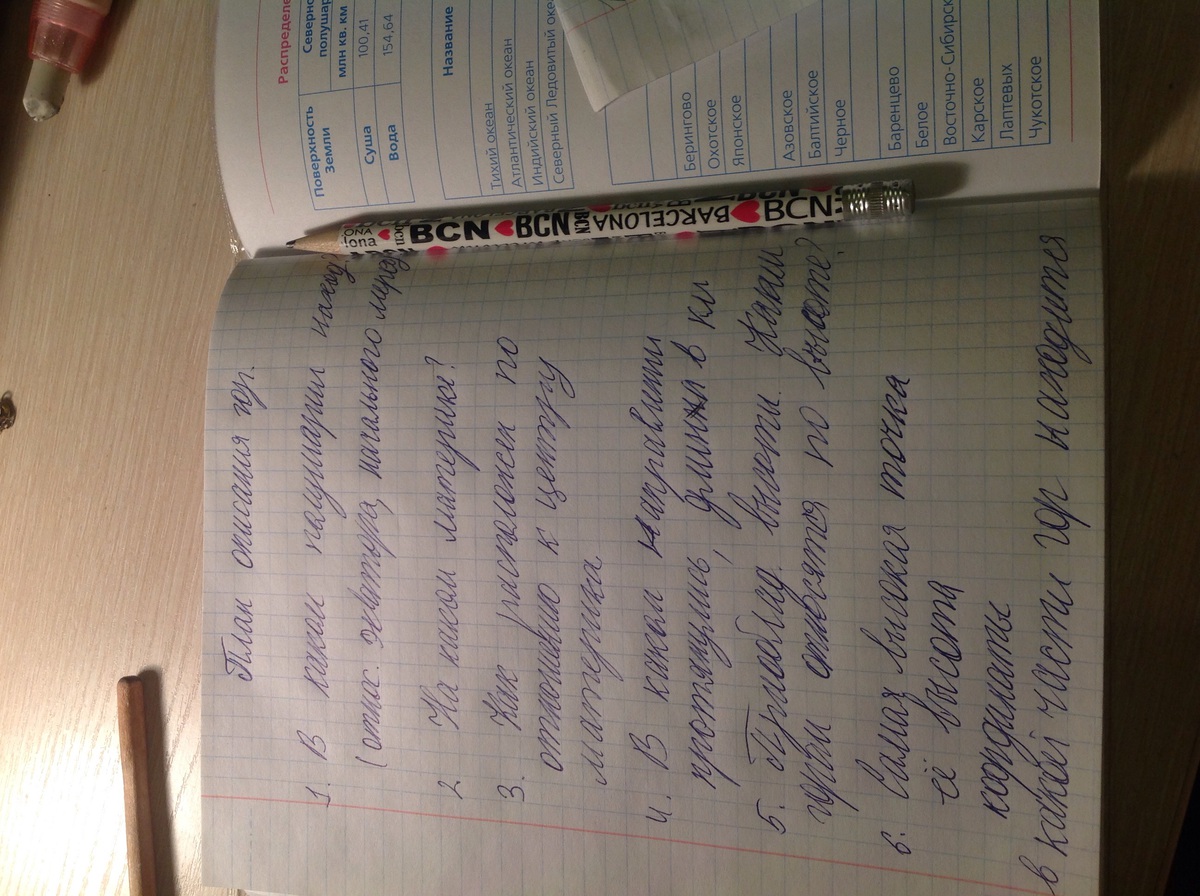 План описания гор.
1. В каком полушарии наход?
(относ. экватора, начального мерид
2 На каком материке?
3. Как расположен по
отношению к центру
материка
4. В каком направлении
протянулись, длина в км
5. Преоблад. высоты. Каким
горам относятся по высоте?
6. Самая высокая точка
её высота
координаты
в какой части гор находится
Распределе
Поверхность
Земли
Северно
полушар
млн кв. км
Суша
100,41
Вода
154,64
Название
Тихий океан
Атлантический океан
Индийский океан
Северный Ледовитый оке
Берингово
Охотское
Японское
Азовское
Балтийское
Черное
Баренцево
Белое
Восточно-Сибирск
Карское
Лаптевых
Чукотское
BCN BCN BARCELONA BCN